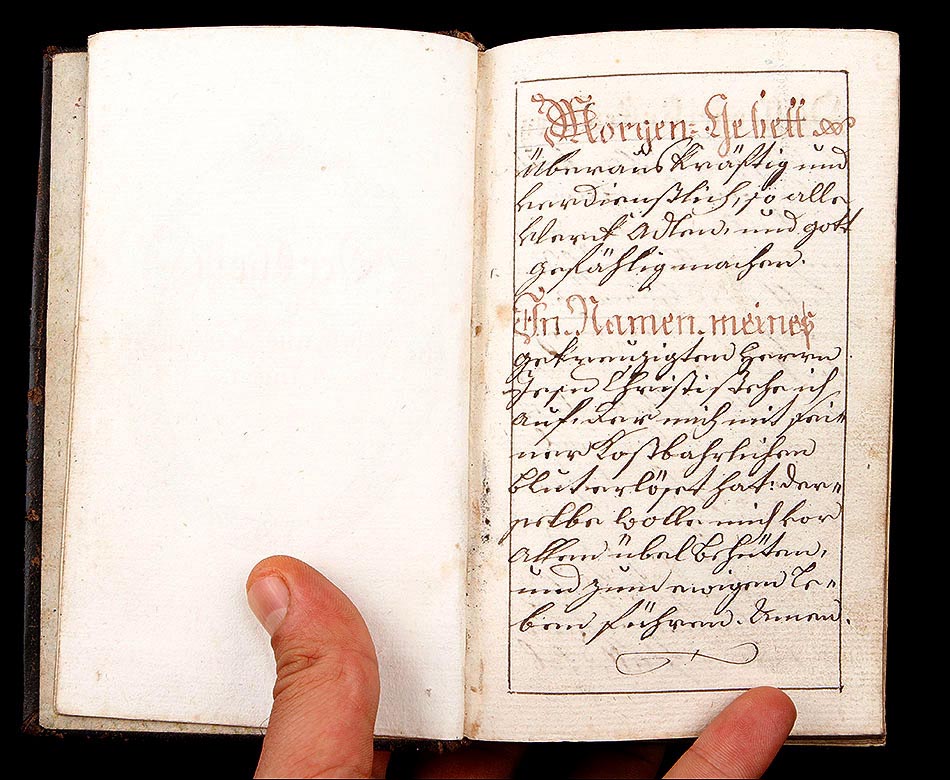 Morgen-Gebett
Überaus kräfftig und
verdienstlich, so alle
Werck Adlen, und gott
gefählig machen.
In Namen meines
gekreuzigten Herrn
Jesu Christi stehe ich
auf. Der mich mit sei=
ner Kostbahrlichen
Blut erlöset hat: der=
selbe wolle mich vor
allem übel behüten,
und zum ewigen Le=
ben führen. Amen.